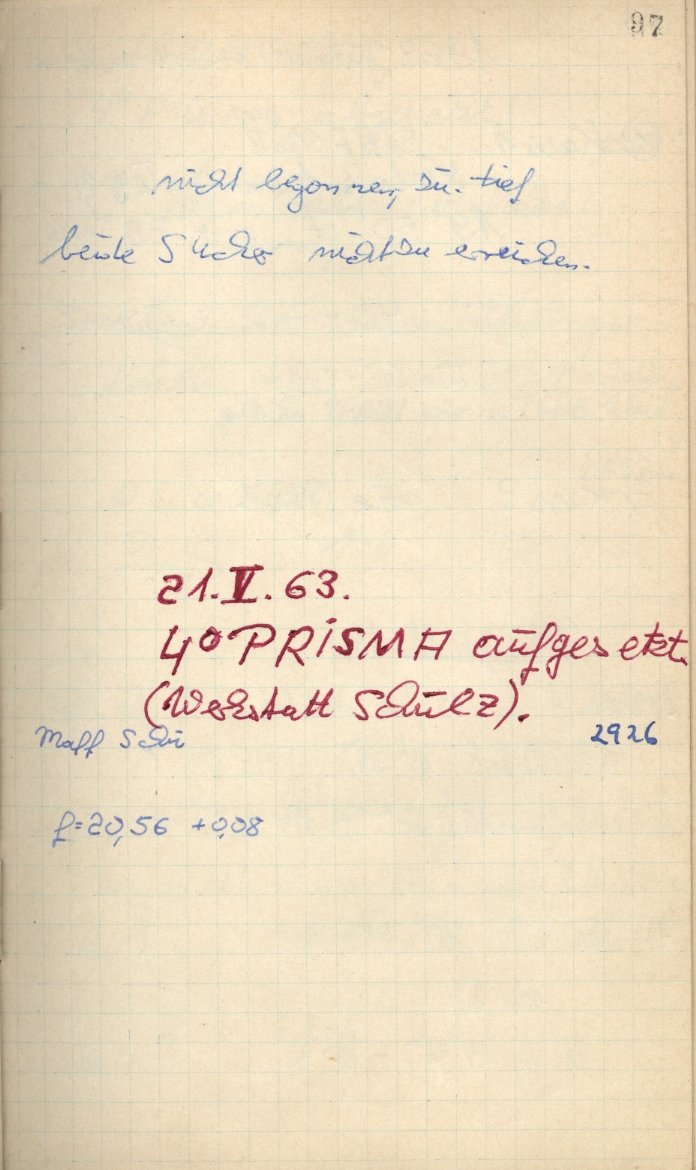 97
nicht begonnen, zu tief
beide Sucher nicht zu erreichen.
21.V.63.
4° PRISMA aufgesetzt.
(Werkstatt Schulz).
Maff Schü 2926
f=20,56 +0,08